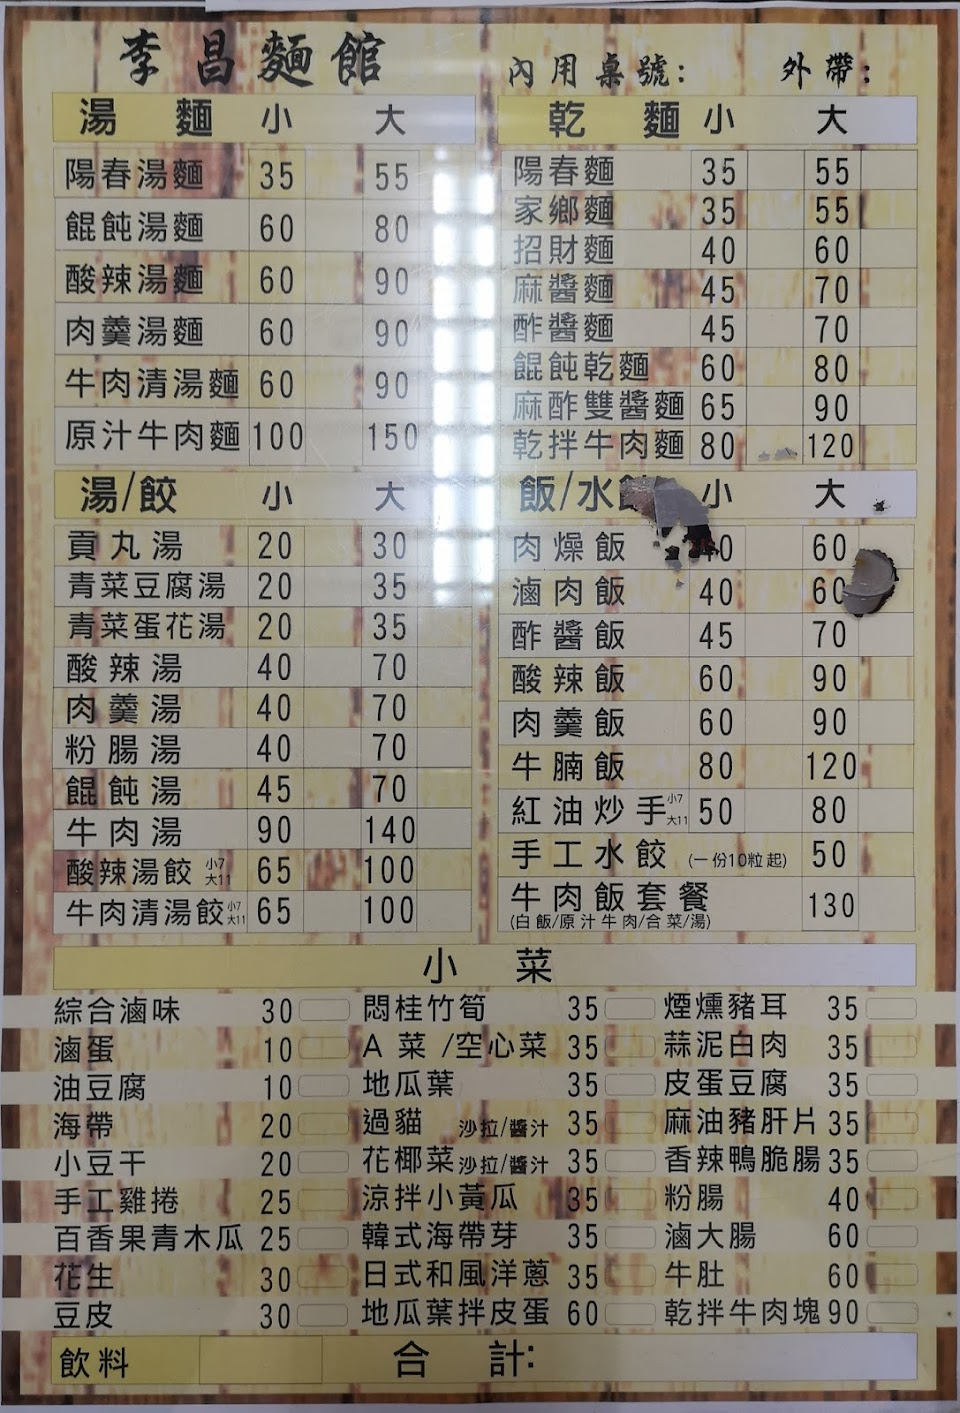 李昌麵館
內用桌號: 外帶:
湯麵 小 大
陽春湯麵 35 55
餛飩湯麵 60 80
酸辣湯麵 60 90
肉羹湯麵 60 90
牛肉清湯麵 60 90
原汁牛肉麵 100 150
乾麵 小 大
陽春麵 35 55
家鄉麵 35 55
招財麵 40 60
麻醬麵 45 70
酢醬麵 45 70
餛飩乾麵 60 80
麻酢雙醬麵 65 90
乾拌牛肉麵 80 120
湯/餃 小 大
貢丸湯 20 30
青菜豆腐湯 20 35
青菜蛋花湯 20 35
酸辣湯 40 70
肉羹湯 40 70
粉腸湯 40 70
餛飩湯 45 70
牛肉湯 90 140
酸辣湯餃 小7 大11 65 100
牛肉清湯餃 小7 大11 65 100
飯/水 小 大
肉燥飯 0 60
滷肉飯 40 60
酢醬飯 45 70
酸辣飯 60 90
肉羹飯 60 90
牛腩飯 80 120
紅油炒手 小7 大11 50 80
手工水餃 (一份10粒起) 50
牛肉飯套餐 130
(白飯/原汁牛肉/合菜/湯)
小菜
綜合滷味 30 悶桂竹筍 35 煙燻豬耳 35
滷蛋 10 A菜/空心菜 35 蒜泥白肉 35
油豆腐 10 地瓜葉 35 皮蛋豆腐 35
海帶 20 過貓 沙拉/醬汁 35 麻油豬肝片 35
小豆干 20 花椰菜 沙拉/醬汁 35 香辣鴨脆腸 35
手工雞捲 25 涼拌小黃瓜 35 粉腸 40
百香果青木瓜 25 韓式海帶芽 35 滷大腸 60
花生 30 日式和風洋蔥 35 牛肚 60
豆皮 30 地瓜葉拌皮蛋 60 乾拌牛肉塊 90
飲料 合計: